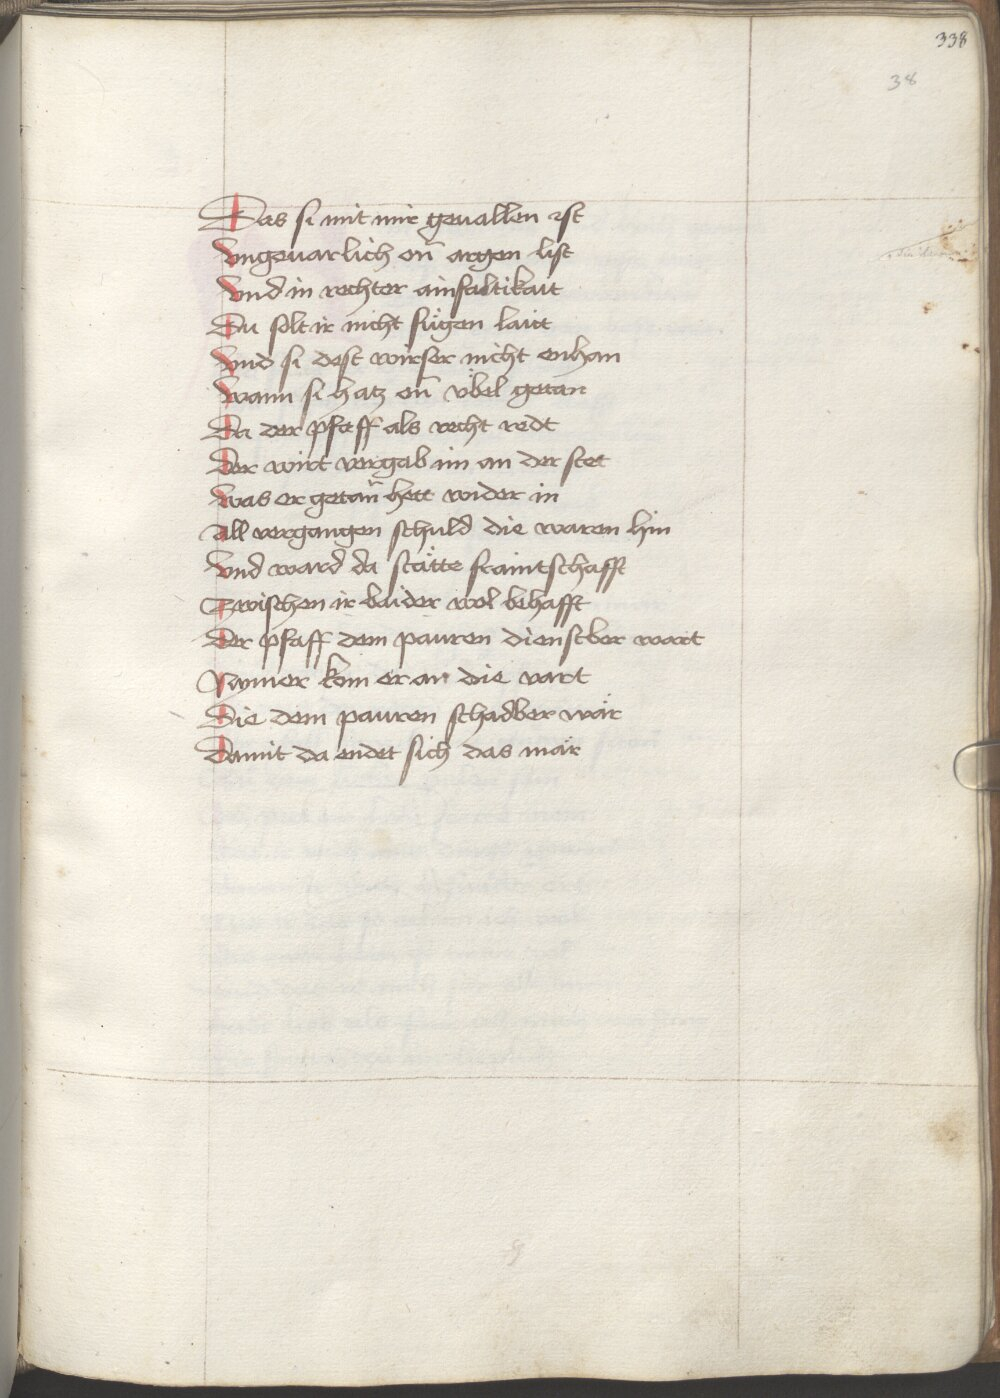 338
38
Das si mit mir geuallen ist
Vngeuarlich on̄ argen list
Vnd in rechter ainfaltikait
Du solt ir nicht fuͤgen laitt
Vnd si dest wirser nicht enhan
Wann si hatz on̄ vͤbel getan
Da der pfaff als recht redt
Der wirt vergab im an der stet
Was er getan̄ hett wider in
All vergangen schuld die waren hin
Vnd ward da staͤtte fraintschafft
Zwischen ir baider wol behafft
Der pfaff dem pauren dienstber wart
Nymer kom er an die vart
Die dem pauren schadber waͤr
Damit da endet sich das maͤr